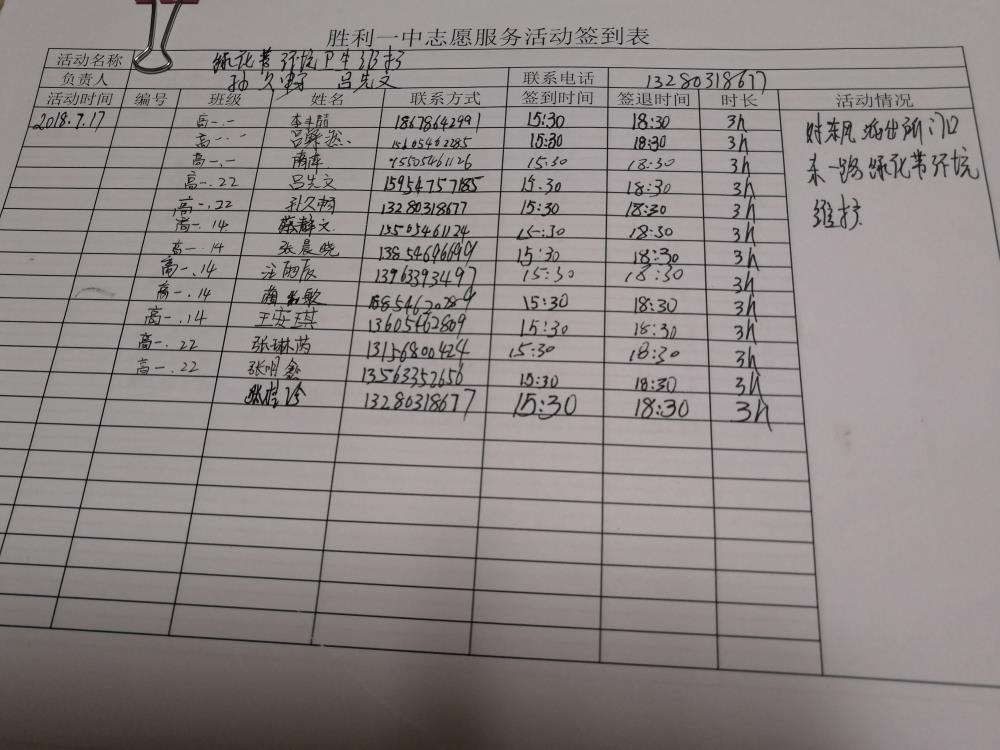 胜利一中志愿服务活动签到表
活动名称 绿化带环境卫生维护
负责人 孙久翔 吕先文 联系电话 13280318677
活动时间 编号 班级 姓名 联系方式 签到时间 签退时间 时长 活动情况
2018.7.17 高一.一 18678642991 15:30 18:30 3h 对东风派出所门口
高一.一 15605462285 15:30 18:30 3h 东一路绿化带环境
高一.一 15505461126 15:30 18:30 3h 维护
高一.22 吕先文 15954757185 15:30 18:30 3h
高一.22 13280318677 15:30 18:30 3h
高一.14 蔡静文 15505461124 15:30 18:30 3h
高一.14 张晨晓 13854696699 15:30 18:30 3h
高一.14 13963393497 15:30 18:30 3h
高一.14 15:30 18:30 3h
高一.14 王安琪 13605462809 15:30 18:30 3h
高一.22 张琳芮 13156800424 15:30 18:30 3h
高一.22 张明鑫 13563352656 15:30 18:30 3h
13280318677 15:30 18:30 3h